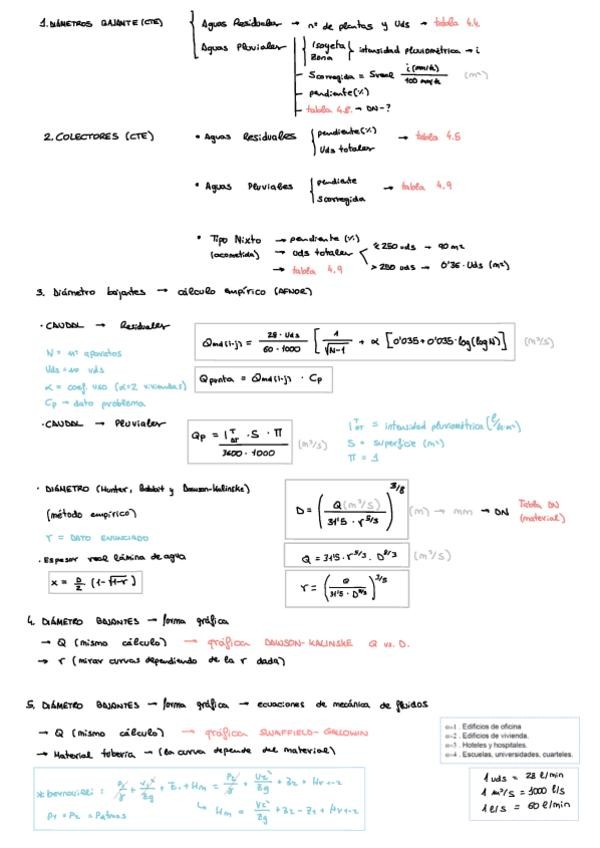 1. DIÁMETROS BAJANTE (CTE)
Aguas Residuales → nº de plantas y Uds → tabla 4.4
Aguas Pluviales
Isoyeta
Zona
intensidad pluviométrica → i
Scorregida = Sreal i (mm/h) / 100 mm/h (m²)
pendiente (%)
tabla 4.8. → DN-?
2. COLECTORES (CTE)
• Aguas Residuales
pendiente (%)
Uds totales
→ tabla 4.5
• Aguas Pluviales
pendiente
Scorregida
→ tabla 4.9
• Tipo Mixto
(acometida)
→ pendiente (%)
→ uds totales
≤ 250 uds → 90 m²
> 250 uds → 0'36 · Uds (m²)
→ tabla 4.9
3. Diámetro bajantes → cálculo empírico (AFNOR)
• CAUDAL → Residuales
Qmd(i-j) = 28 · Uds / 60 · 1000 [ 1 / √N-1 + α [0'035 + 0'035 · log(logN)] ] (m³/s)
N = nº aparatos
Uds = nº uds
α = coef. uso (α=2 viviendas)
Cp → dato problema
Qpunta = Qmd(i-j) · Cp
• CAUDAL → Pluviales
Qp = I^T_ΔT · S · Π / 3600 · 1000 (m³/s)
I^T_ΔT = intensidad pluviométrica (l/h·m²)
S = superficie (m²)
Π = 1
• DIÁMETRO (Hunter, Babbit y Dawson-Kalinske)
(método empírico)
r = DATO ENUNCIADO
D = ( Q (m³/s) / 31'5 · r^5/3 )^3/8 (m) → mm → DN
Tabla DN
(material)
• Espesor real lámina de agua
x = D/2 (1-√1-r)
Q = 31'5 · r^5/3 · D^8/3 (m³/s)
r = ( Q / 31'5 · D^8/3 )^3/5
4. DIÁMETRO BAJANTES → forma gráfica
→ Q (mismo cálculo) → gráfica DAWSON-KALINSKE Q vs. D.
→ r (mirar curvas dependiendo de la r dada)
5. DIÁMETRO BAJANTES → forma gráfica → ecuaciones de mecánica de fluidos
→ Q (mismo cálculo) → gráfica SWAFFIELD-GALLOWIN
→ Material tubería → (la curva depende del material)
α=1 . Edificios de oficina
α=2 . Edificios de vivienda.
α=3 . Hoteles y hospitales.
α=4 . Escuelas, universidades, cuarteles.
1 uds = 28 l/min
1 m³/s = 1000 l/s
1 l/s = 60 l/min
* bernouilli : P1/γ + V1²/2g + Z1 + Hm = P2/γ + V2²/2g + Z2 + Hr1-2
P1 = P2 = Patmos
↳ Hm = V2²/2g + Z2 - Z1 + Hr1-2